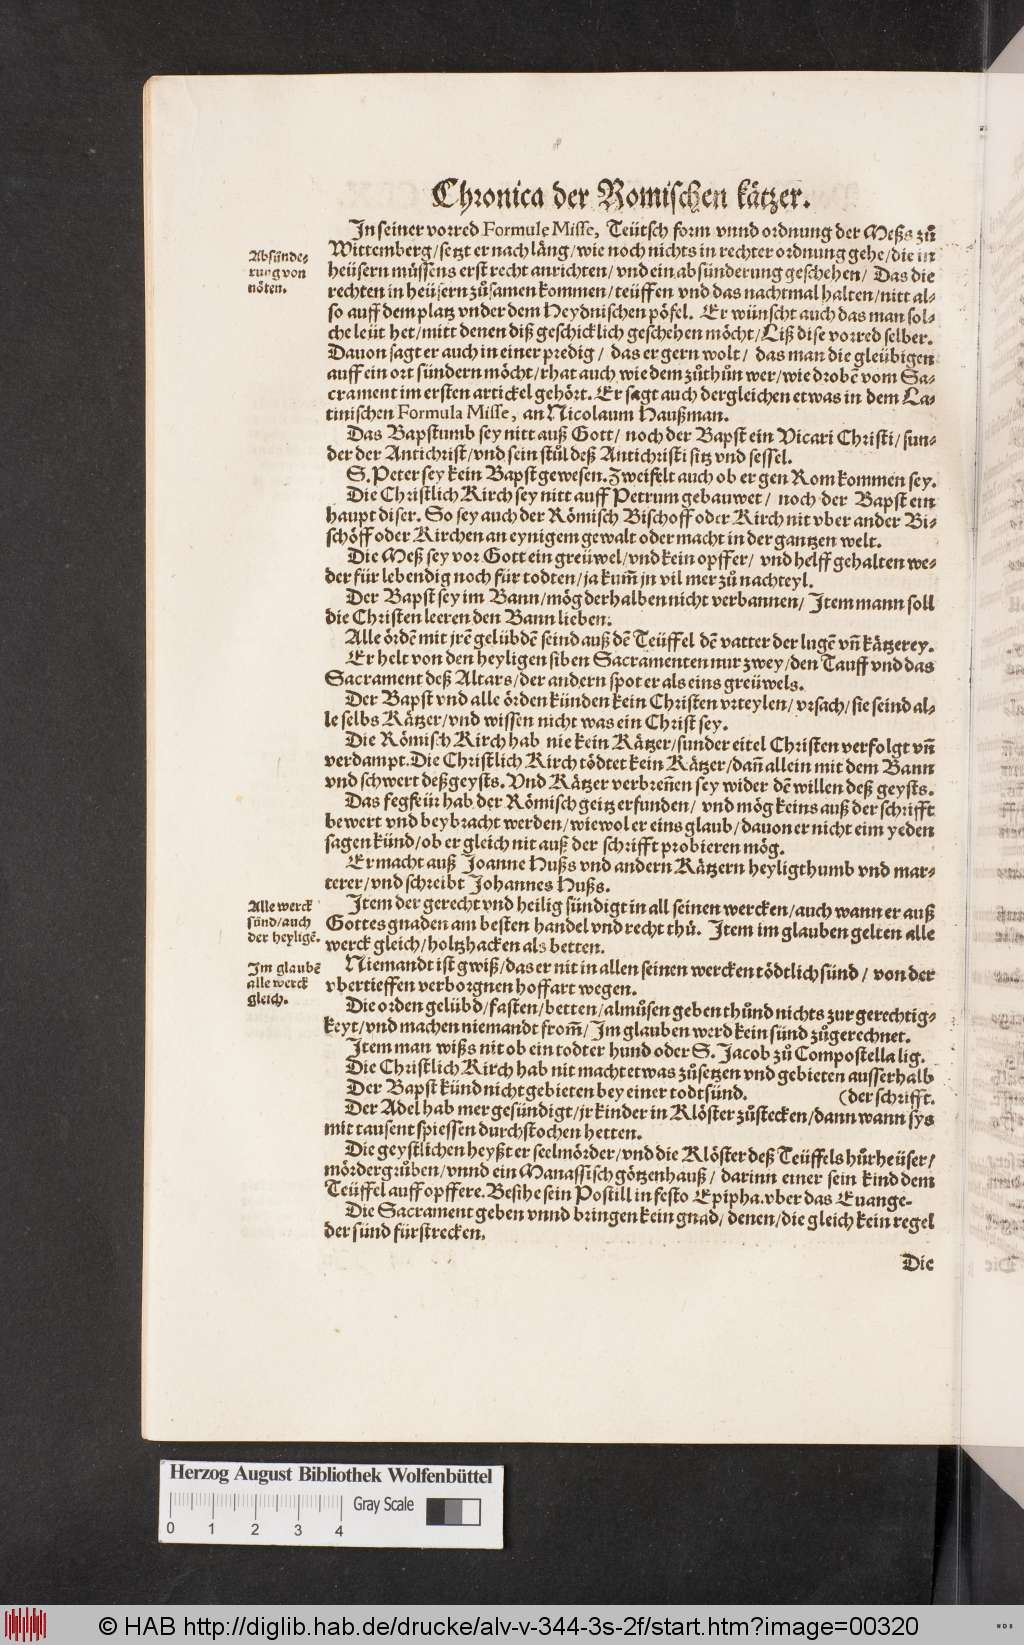 Chronica der Romischen kätzer.
In seiner vorred Formulę Misse, Teütsch form vnnd ordnung der Meßs zů
Wittemberg/setzt er nach läng/wie noch nichts in rechter ordnung gehe/die in
Absünde-
rung von
nöten.
heüsern müssens erst recht anrichten/vnd ein absünderung geschehen/ Das die
rechten in heüsern zůsamen kommen/teüffen vnd das nachtmal halten/nitt al-
so auff dem platz vnder dem Heydnischen pöfel. Er wünscht auch das man sol-
che leüt het/mitt denen diß geschicklich geschehen möcht/Liß dise vorred selber.
Dauon sagt er auch in einer predig/ das er gern wolt/ das man die gleübigen
auff ein ort sündern möcht/rhat auch wie dem zůthůn wer/wie drobē vom Sa-
crament im ersten artickel gehört. Er sagt auch dergleichen etwas in dem La-
tinischen Formula Misse, an Nicolaum Haußman.
Das Bapstumb sey nitt auß Gott/ noch der Bapst ein Vicari Christi/sun-
der der Antichrist/vnd sein stůl deß Antichristi sitz vnd sessel.
S. Peter sey kein Bapst gewesen. Zweifelt auch ob er gen Rom kommen sey.
Die Christlich Kirch sey nitt auff Petrum gebauwet/ noch der Bapst ein
haupt diser. So sey auch der Römisch Bischoff oder Kirch nit vber ander Bi-
schöff oder Kirchen an eynigem gewalt oder macht in der gantzen welt.
Die Meß sey vor Gott ein greüwel/vnd kein opffer/ vnd helff gehalten we-
der für lebendig noch für todten/ja kum̄ jn vil mer zů nachteyl.
Der Bapst sey im Bann/mög derhalben nicht verbannen/ Item mann soll
die Christen leeren den Bann lieben.
Alle ördē mit jrē gelübdē seind auß dē Teüffel dē vatter der lugē vn̄ kätzerey.
Er helt von den heyligen siben Sacramenten nur zwey/den Tauff vnd das
Sacrament deß Altars/der andern spot er als eins greüwels.
Der Bapst vnd alle örden künden kein Christen vrteylen/ vrsach/sie seind al-
le selbs Kätzer/vnd wissen nicht was ein Christ sey.
Die Römisch Kirch hab nie kein Kätzer/sunder eitel Christen verfolgt vn̄
verdampt. Die Christlich Kirch tödtet kein Kätzer/dan̄ allein mit dem Bann
vnd schwert deß geysts. Vnd Kätzer verbren̄en sey wider dē willen deß geysts.
Das fegfeür hab der Römisch geitz erfunden/ vnd mög keins auß der schrifft
bewert vnd beybracht werden/wiewol er eins glaub/dauon er nicht eim yeden
sagen künd/ob er gleich nit auß der schrifft probieren mög.
Er macht auß Joanne Hußs vnd andern Kätzern heyligthumb vnd mar-
terer/vnd schreibt Johannes Hußs.
Alle werck
sünd/auch
der heyligē.
Item der gerecht vnd heilig sündigt in all seinen wercken/auch wann er auß
Gottes gnaden am besten handel vnd recht thů. Item im glauben gelten alle
werck gleich/holtzhacken als betten.
Im glaubē
alle werck
gleich.
Niemandt ist gwiß/das er nit in allen seinen wercken tödtlich sünd/ von der
vbertieffen verborgnen hoffart wegen.
Die orden gelübd/fasten/betten/almůsen geben thůnd nichts zur gerechtig-
keyt/vnd machen niemandt from̄/ Im glauben werd kein sünd zůgerechnet.
Item man wißs nit ob ein todter hund oder S. Jacob zů Compostella lig.
Die Christlich Kirch hab nit macht etwas zůsetzen vnd gebieten ausserhalb
Der Bapst künd nicht gebieten bey einer todtsünd. (der schrifft.
Der Adel hab mer gesündigt/jr kinder in Klöster zůstecken/dann wann sys
mit tausent spiessen durchstochen hetten.
Die geystlichen heyßt er seelmörder/vnd die Klöster deß Teüffels hůrheüser/
mördergrůben/vnnd ein Manassisch götzenhauß/ darinn einer sein kind dem
Teüffel auffopffere. Besihe sein Postill in festo Epipha. vber das Euange-
Die Sacrament geben vnnd bringen kein gnad/denen/die gleich kein regel
der sünd fürstrecken.
Die
Herzog August Bibliothek Wolfenbüttel
Gray Scale
0 1 2 3 4
© HAB http://diglib.hab.de/drucke/alv-v-344-3s-2f/start.htm?image=00320